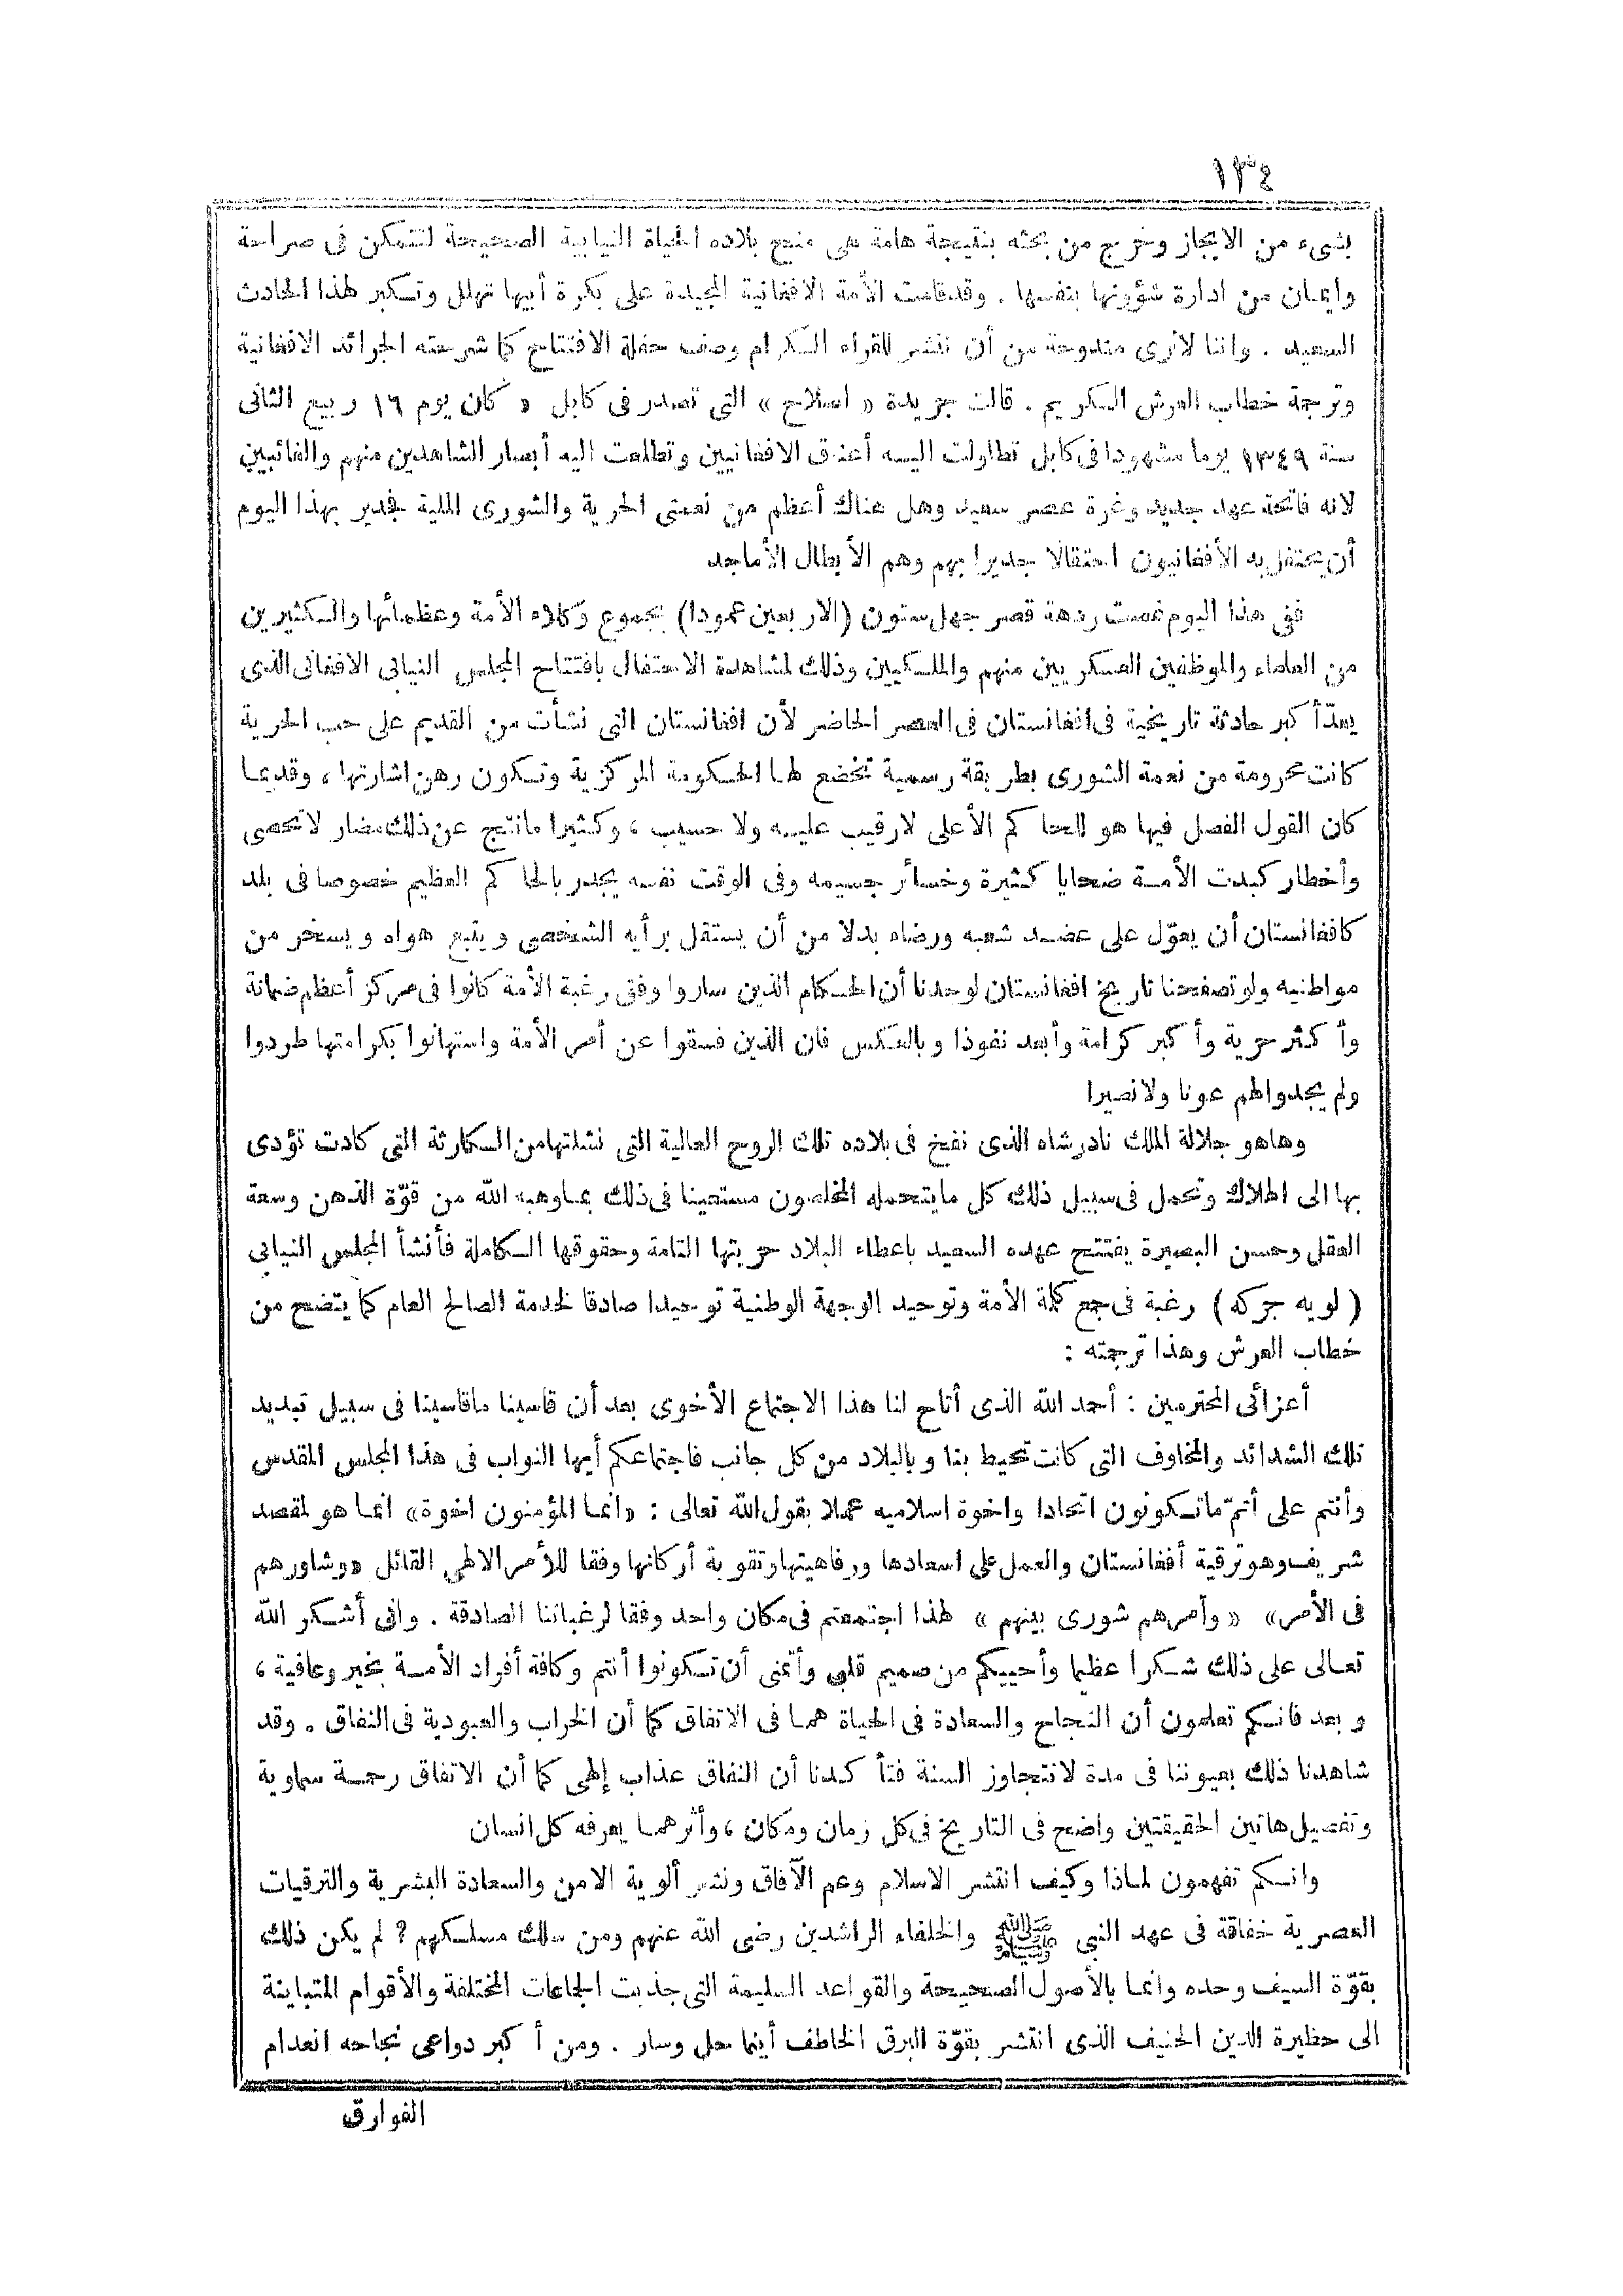 ١٣٤
بشىء من الايجاز وخرج من بحثه بنتيجة هامة هى منح بلاده الحياة النيابية الصحيحة لتتمكن فى صراحة
وايمان من ادارة شؤونها بنفسها . وقد قامت الأمة الافغانية المجيدة على بكرة أبيها تهلل وتكبر لهذا الحادث
السعيد . واننا لانرى مندوحة من أن ننشر للقراء الكرام وصف حفلة الافتتاح كما شرحته الجرائد الافغانية
وترجمة خطاب العرش الكريم . قالت جريدة « اصلاح » التى تصدر فى كابل « كان يوم ١٦ ربيع الثانى
سنة ١٣٤٩ يوما مشهودا فى كابل تطاولت اليه أعناق الافغانيين وتطلعت اليه أبصار الشاهدين منهم والغائبين
لانه فاتحة عهد جديد وغرة عصر سعيد وهل هناك أعظم من نعمتى الحرية والشورى الملية فجدير بهذا اليوم
أن يحتفل به الأفغانيون احتفالا جديرا بهم وهم الأبطال الأماجد
ففى هذا اليوم غصت ردهة قصر جهل ستون (الاربعين عمودا) بجموع وكلاء الأمة وعظمائها والكثيرين
من العلماء والموظفين العسكريين منهم والملكيين وذلك لمشاهدة الاحتفال بافتتاح المجلس النيابى الافغانى الذى
يعدّ أكبر حادثة تاريخية فى افغانستان فى العصر الحاضر لأن افغانستان التى نشأت من القديم على حب الحرية
كانت محرومة من نعمة الشورى بطريقة رسمية تخضع لها الحكومة المركزية وتكون رهن اشارتها ، وقديما
كان القول الفصل فيها هو للحاكم الأعلى لارقيب عليه ولا حسيب ، وكثيرا مانتج عن ذلك مضار لاتحصى
وأخطار كبدت الأمة ضحايا كثيرة وخسائر جسيمه وفى الوقت نفسه يجدر بالحاكم العظيم خصوصا فى بلد
كافغانستان أن يعوّل على عضد شعبه ورضاه بدلا من أن يستقل برأيه الشخصى ويتبع هواه ويسخر من
مواطنيه ولو تصفحنا تاريخ افغانستان لوجدنا أن الحكام الذين ساروا وفق رغبة الأمة كانوا فى مركز أعظم ضمانة
وأكثر حرية وأكبر كرامة وأبعد نفوذا وبالعكس فان الذين فسقوا عن أمر الأمة واستهانوا بكرامتها طردوا
ولم يجدوا لهم عونا ولا نصيرا
وهاهو جلالة الملك نادر شاه الذى نفخ فى بلاده تلك الروح العالية التى نشلتها من الكارثة التى كادت تؤدى
بها الى الهلاك وتحمل فى سبيل ذلك كل مايتحمله المخلصون مستعينا فى ذلك بما وهبه الله من قوّة الذهن وسعة
العقل وحسن البصيرة يفتتح عهده السعيد باعطاء البلاد حريتها التامة وحقوقها الكاملة فأنشأ المجلس النيابى
( لويه جركه ) رغبة فى جمع كلمة الأمة وتوحيد الوجهة الوطنية توحيدا صادقا لخدمة الصالح العام كما يتضح من
خطاب العرش وهذا ترجمته :
أعزائى المحترمين : أحمد الله الذى أتاح لنا هذا الاجتماع الأخوى بعد أن قاسينا ماقاسينا فى سبيل تبديد
تلك الشدائد والمخاوف التى كانت تحيط بنا وبالبلاد من كل جانب فاجتماعكم أيها النواب فى هذا المجلس المقدس
وأنتم على أتمّ ماتكونون اتحادا واخوة اسلاميه عملا بقول الله تعالى : «انما المؤمنون اخوة» انما هو لمقصد
شريف وهو ترقية أفغانستان والعمل على اسعادها ورفاهيتها وتقوية أركانها وفقا للأمر الالهى القائل «وشاورهم
فى الأمر» «وأمرهم شورى بينهم» لهذا اجتمعتم فى مكان واحد وفقا لرغباتنا الصادقة . وانى أشكر الله
تعالى على ذلك شكرا عظيما وأحييكم من صميم قلبى وأتمنى أن تكونوا أنتم وكافة أفراد الأمة بخير وعافية ،
وبعد فانكم تعلمون أن النجاح والسعادة فى الحياة هما فى الاتفاق كما أن الخراب والعبودية فى النفاق . وقد
شاهدنا ذلك بعيوننا فى مدة لاتتجاوز السنة فتأكدنا أن النفاق عذاب إلهى كما أن الاتفاق رحمة سماوية
وتفصيل هاتين الحقيقتين واضح فى التاريخ فى كل زمان ومكان ، وأثرهما يعرفه كل انسان
وانكم تفهمون لماذا وكيف انتشر الاسلام وعم الآفاق ونشر ألوية الامن والسعادة البشرية والترقيات
العصرية خفاقة فى عهد النبى ﷺ والخلفاء الراشدين رضى الله عنهم ومن سلك مسلكهم ? لم يكن ذلك
بقوّة السيف وحده وانما بالأصول الصحيحة والقواعد السليمة التى جذبت الجماعات المختلفة والأقوام المتباينة
الى حظيرة الدين الحنيف الذى انتشر بقوّة البرق الخاطف أينما حل وسار . ومن أكبر دواعى نجاحه انعدام
الفوارق